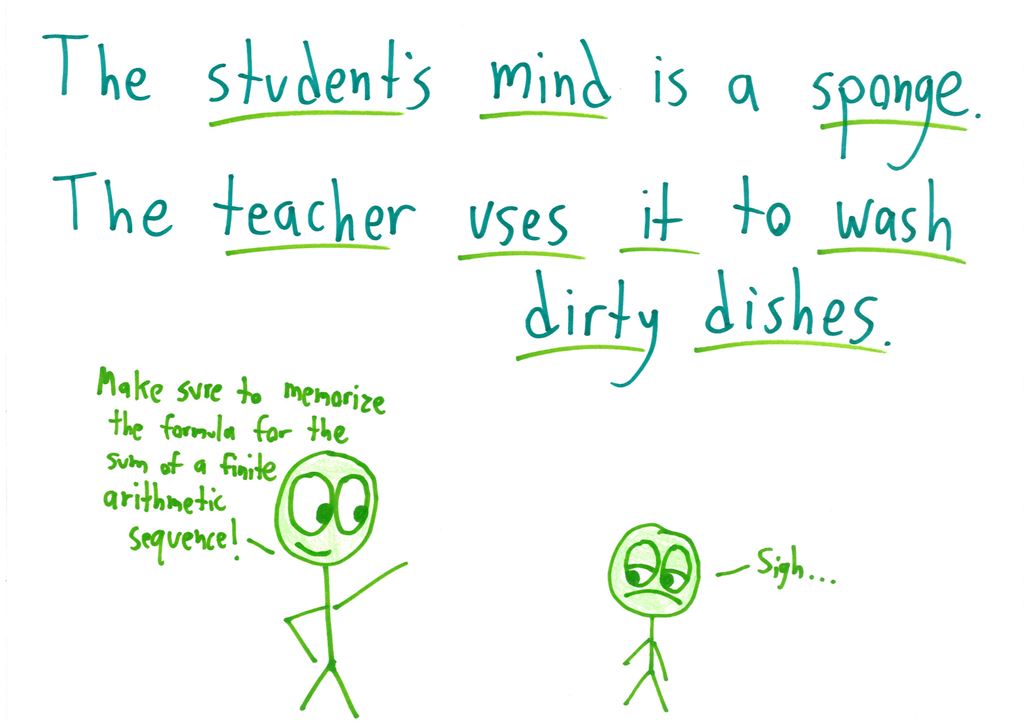 The student's mind is a sponge.
The teacher uses it to wash
dirty dishes.
Make sure to memorize
the formula for the
sum of a finite
arithmetic
sequence!
Sigh...